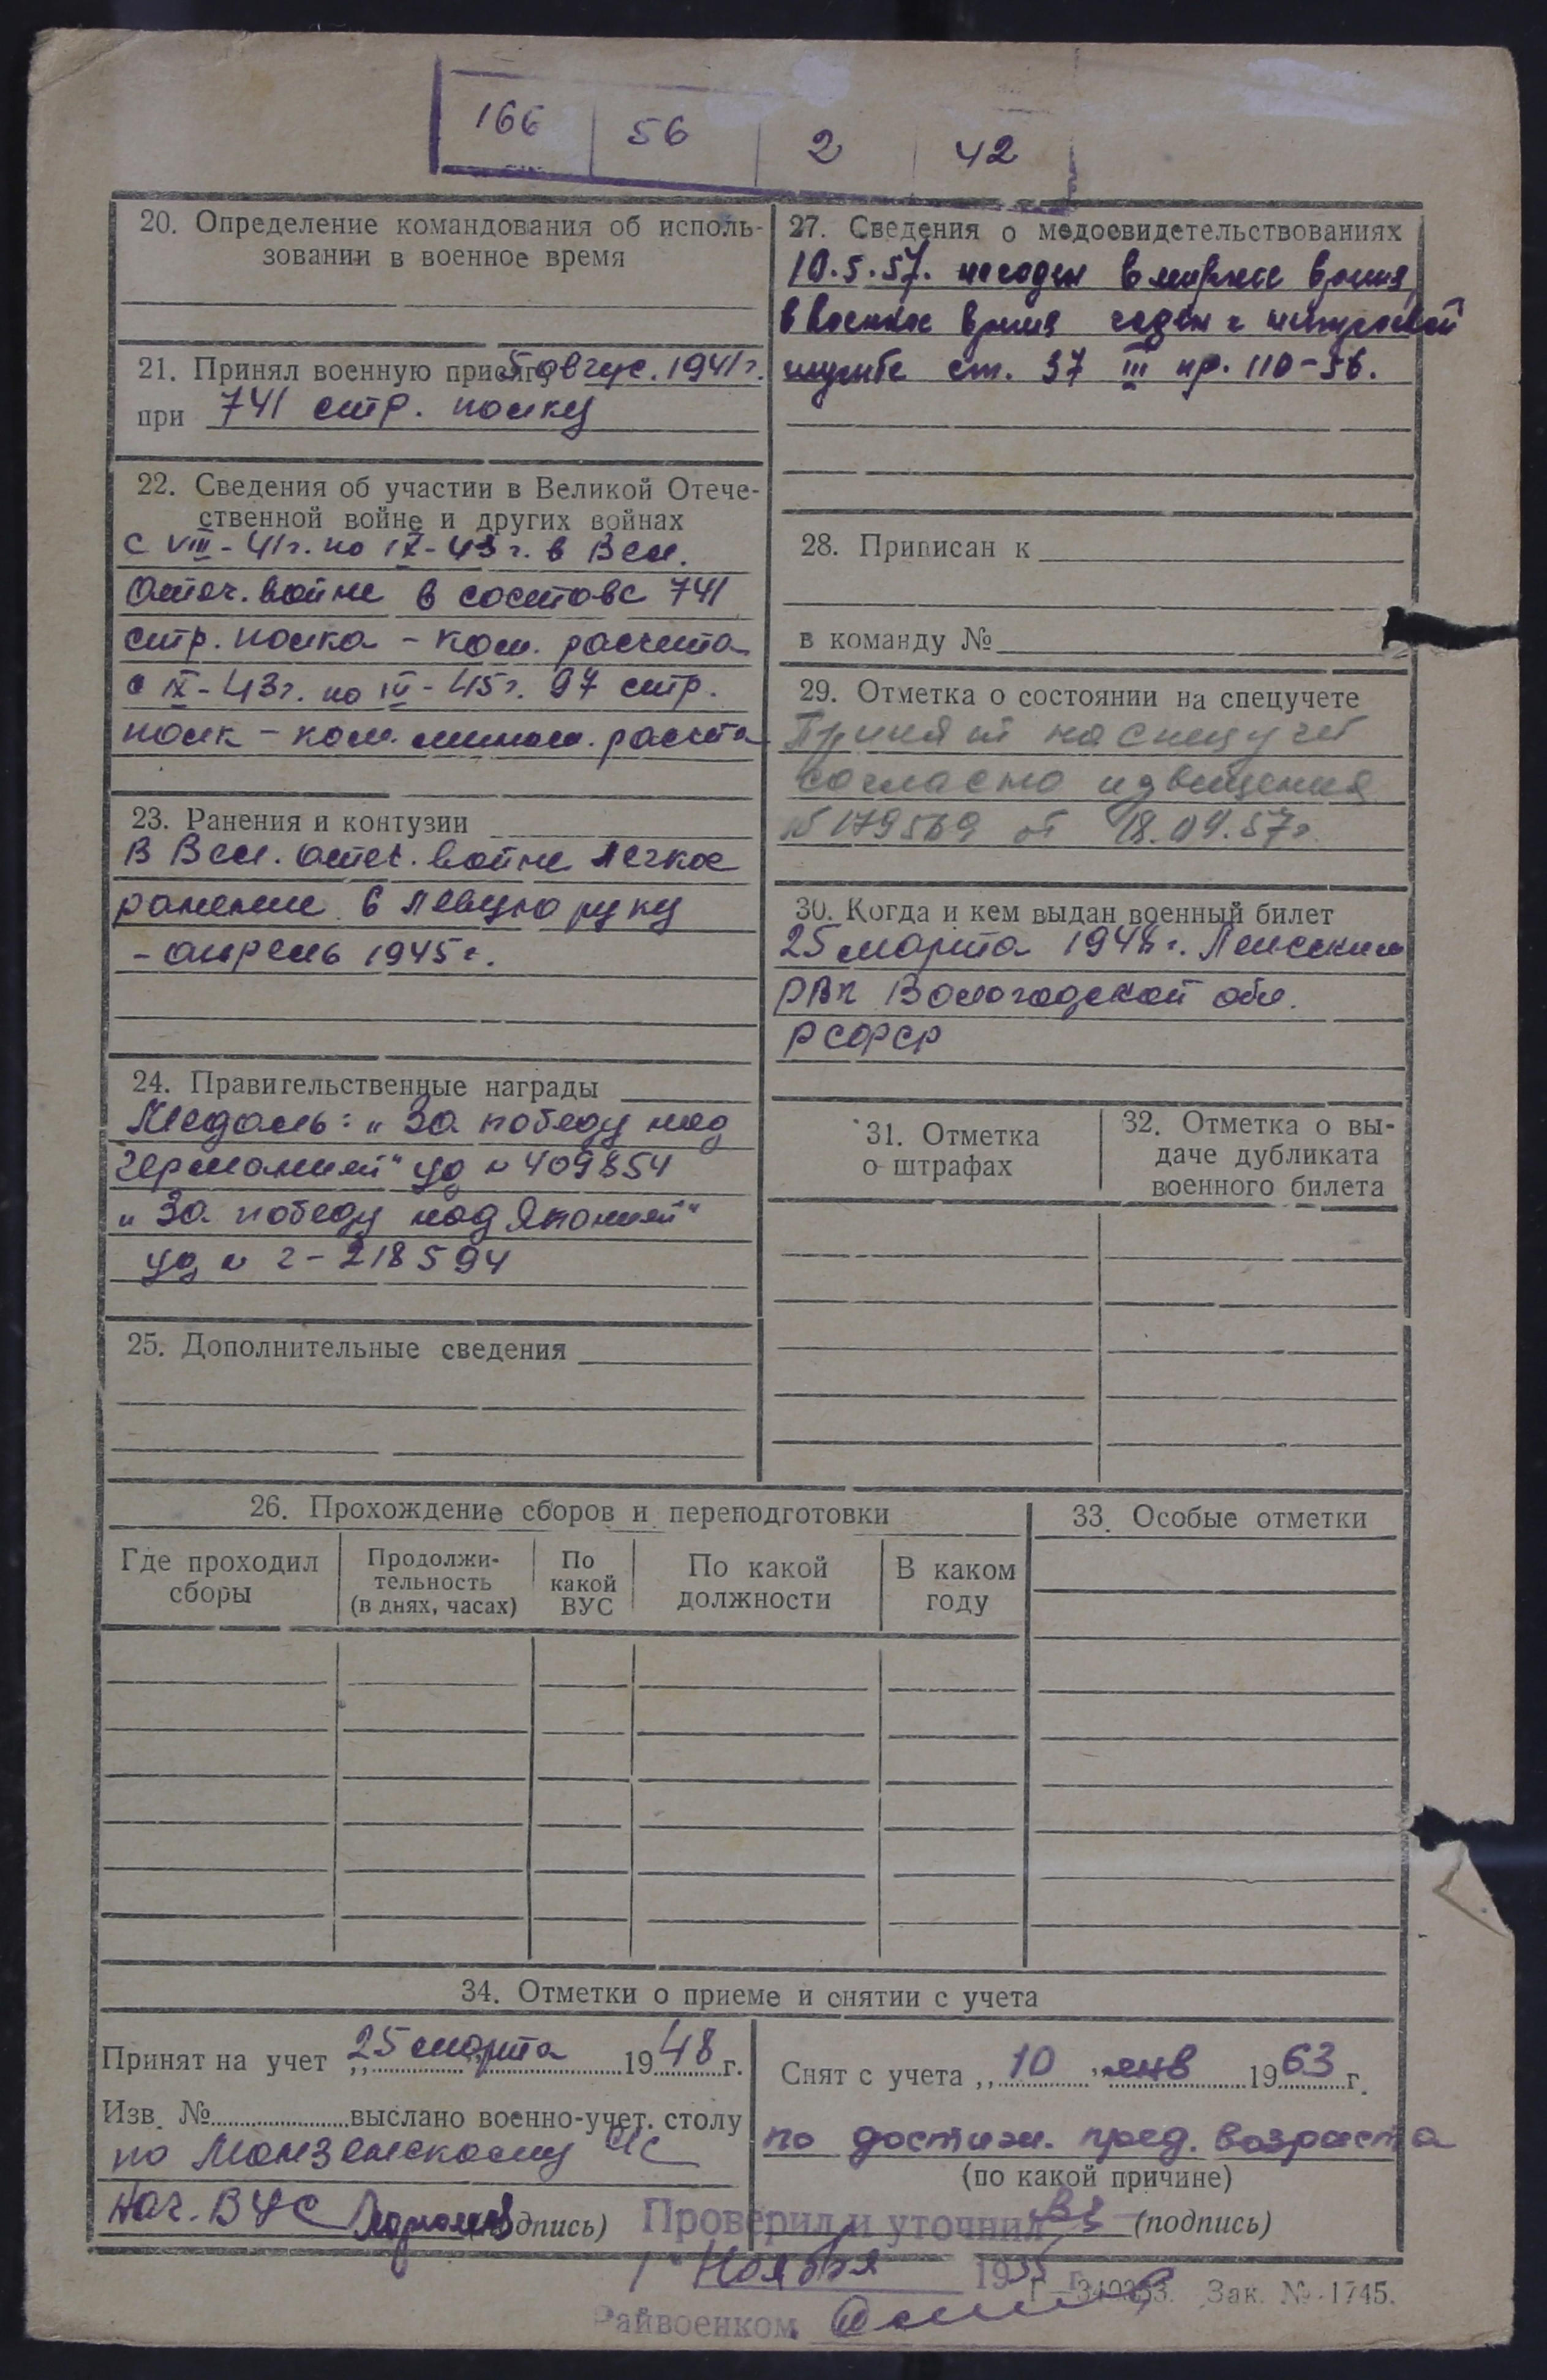 166 56 2 42
20. Определение командования об исполь-
зовании в военное время
21. Принял военную присягу 5 авгус. 1941 г.
при 741 стр. полку
22. Сведения об участии в Великой Отече-
ственной войне и других войнах
с VIII-41 г. по IX-43 г. в Вел.
Отеч. войне в составе 741
стр. полка - ком. расчета
с IX-43 г. по IV-45 г. 97 стр.
полк - ком. мином. расчета
23. Ранения и контузии
В Вел. отеч. войне легкое
ранение в левую руку
- апрель 1945 г.
24. Правительственные награды
Медаль: „За победу над
Германией" уд № 409854
„За победу над Японией"
уд № г-218594
25. Дополнительные сведения
27. Сведения о медосвидетельствованиях
10.5.57. негоден в мирное время,
в военное время годен к нестроевой
службе ст. 37 III пр. 110-56.
28. Приписан к
в команду №
29. Отметка о состоянии на спецучете
Принят на спецучет
согласно извещения
№ 179569 от 18.04.57 г.
30. Когда и кем выдан военный билет
25 марта 1948 г.
РВК Вологодской обл.
РСФСР
31. Отметка
о штрафах
32. Отметка о вы-
даче дубликата
военного билета
26. Прохождение сборов и переподготовки
Где проходил
сборы
Продолжи-
тельность
(в днях, часах)
По
какой
ВУС
По какой
должности
В каком
году
33. Особые отметки
34. Отметки о приеме и снятии с учета
Принят на учет „25 марта 1948 г.
Изв. № выслано военно-учет. столу
по Монзенскому с/с
Нач. ВУС (подпись)
Снят с учета „10" янв 1963 г.
по достиж. пред. возраста
(по какой причине)
(подпись)
Проверил и уточнил
1 Ноября 1955 г.
Райвоенком
Г-340353. Зак. № 1745.